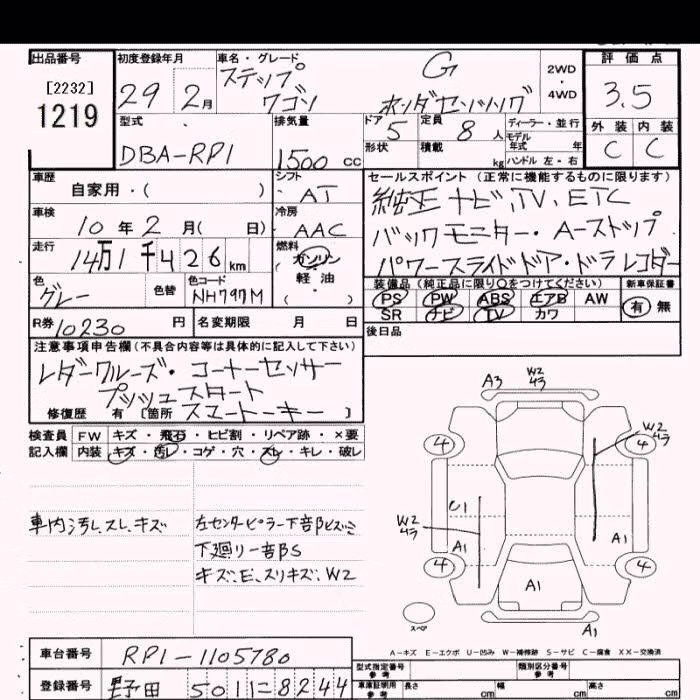 出品番号
[2232]
1219
初度登録年月
29 2月
車名・グレード
ステップ G
ワゴン ホンダセンシング
2WD
・
4WD
評価点
3.5
外装 内装
C C
型式
DBA-RP1
排気量
1500 cc
ドア 5
定員 8人
ディーラー・並行
モデル
年式 年
形状
積載 kg
ハンドル 左・右
車歴
自家用・( )
シフト
AT
車検
10年2月( 日)
冷房
AAC
走行
14万1千426km
燃料
ガソリン
軽油
( )
色
グレー
色替
色コード
NH797M
R券 10230円
名変期限 月 日
セールスポイント (正常に機能するものに限ります)
純正ナビ,TV,ETC
バックモニター・A-ストップ
パワースライドドア・ドラレコダー
装備品(純正品に限り○をつけてください)
PS PW ABS エアB AW
SR ナビ TV カワ
新車保証書
有 無
後日品
注意事項申告欄(不具合内容等は具体的に記入して下さい)
レダークルーズ・コーナーセンサー
プッシュスタート
スマートーキー
修復歴 有 [箇所 ]
検査員 FW キズ・飛石・ヒビ割・リペア跡・×要
記入欄 内装 キズ・汚レ・コゲ・穴・スレ・キレ・破レ
車内汚レ、スレ、キズ
左センターピラー下部ヒズミ
下廻り一部S
キズ、E、スリキズ、W2
A3
W2
43
W2
4ラ
4 4
U1
W2
4ラ
A1 A1
4 4
A1
スペア
A1
A-キズ E-エクボ U-凹み W-補修跡 S-サビ C-腐食 XX-交換済
車台番号 RP1-1105780
登録番号 野田 501に8244
型式指定番号 参考
類別区分番号 参考
車庫証明用 参考
長さ cm 幅 cm 高さ cm